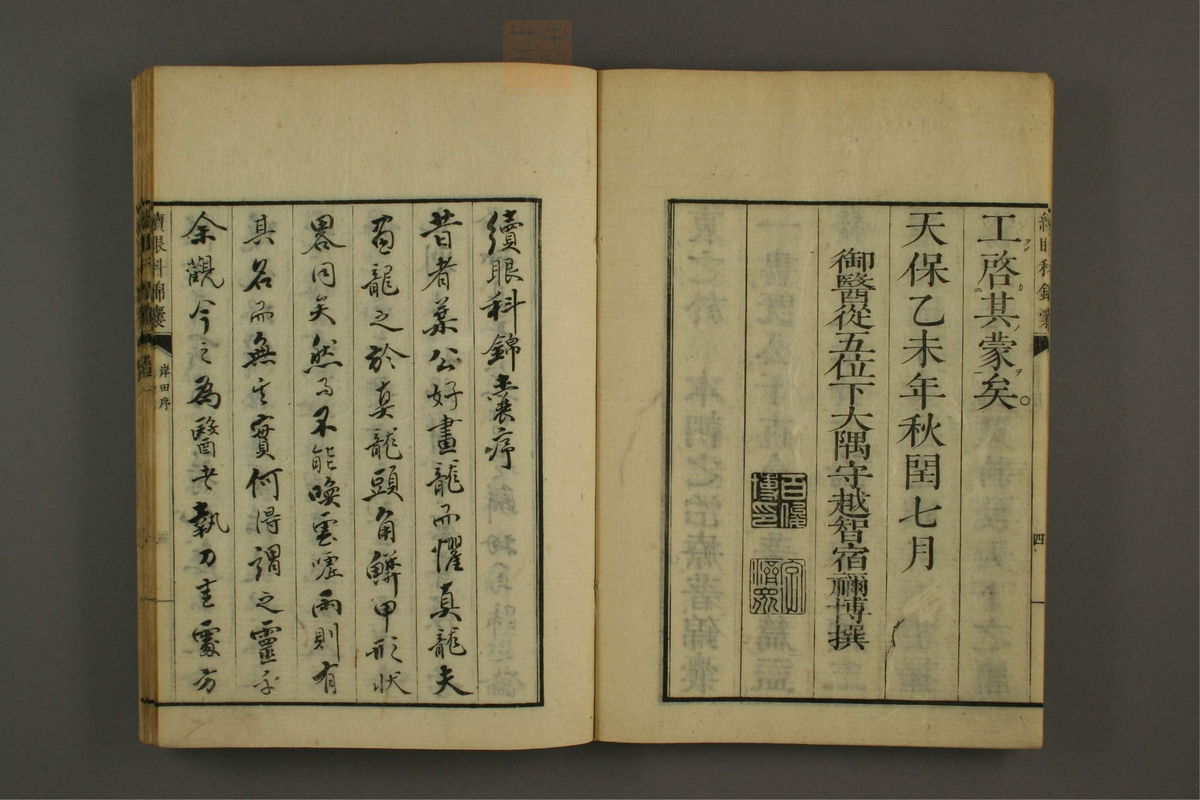 工啓其蒙矣。
天保乙未年秋閏七月
御醫從五位下大隅守越智宿禰博撰
續眼科錦囊序
昔者葉公好畫龍而懼真龍夫
畫龍之於真龍頭角鱗甲形狀
畧同矣然而不能喚雲嘘雨則有
其名而無其實何得謂之靈乎
余觀今之為醫者執刀圭處方
續眼科錦囊
岸田序
四